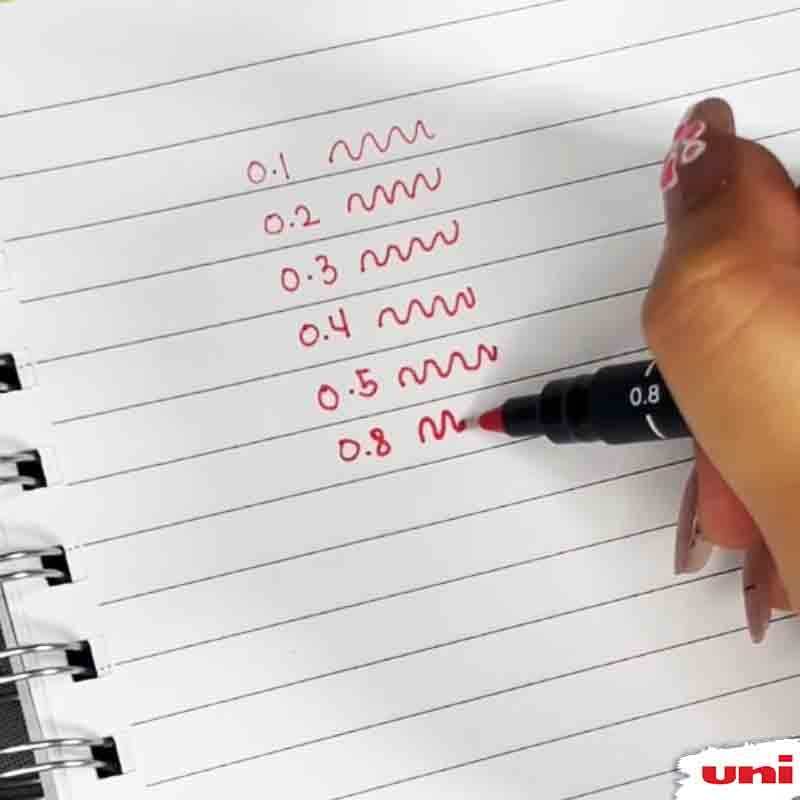 0.1
0.2
0.3
0.4
0.5
0.8
0.8
uni